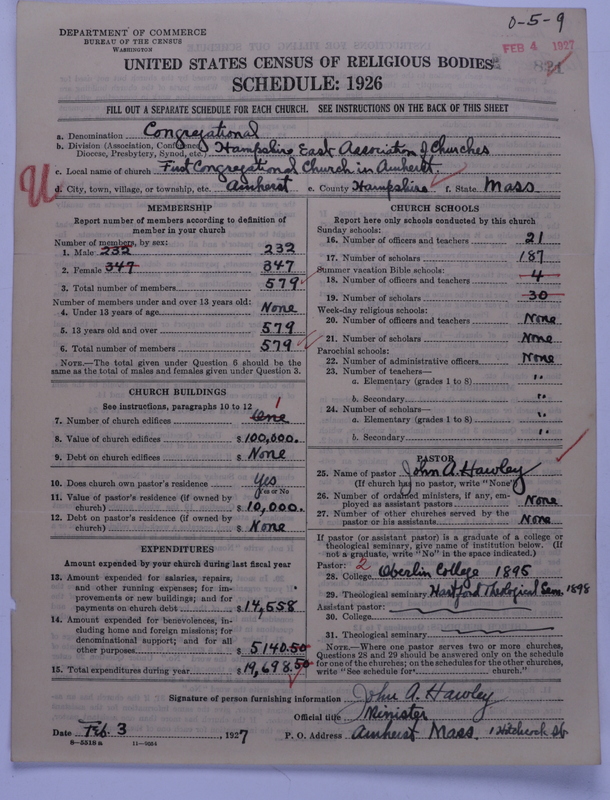 DEPARTMENT OF COMMERCE
BUREAU OF THE CENSUS
WASHINGTON
0-5-9
FEB 4 1927
UNITED STATES CENSUS OF RELIGIOUS BODIES
SCHEDULE: 1926
FILL OUT A SEPARATE SCHEDULE FOR EACH CHURCH. SEE INSTRUCTIONS ON THE BACK OF THIS SHEET
a. Denomination Congregational
b. Division (Association, Conference, Hampshire East Association of Churches
Diocese, Presbytery, Synod, etc.)
c. Local name of church First Congregational Church in Amherst.
d. City, town, village, or township, etc. Amherst e. County Hampshire f. State Mass.
MEMBERSHIP
Report number of members according to definition of
member in your church
Number of members, by sex:
1. Male 232 232
2. Female 347 347
3. Total number of members 579
Number of members under and over 13 years old:
4. Under 13 years of age None
5. 13 years old and over 579
6. Total number of members 579
NOTE.—The total given under Question 6 should be the
same as the total of males and females given under Question 3.
CHURCH BUILDINGS
See instructions, paragraphs 10 to 12
7. Number of church edifices One 1
8. Value of church edifices $100,000.
9. Debt on church edifices $ None
10. Does church own pastor's residence Yes
Yes or No
11. Value of pastor's residence (if owned by
church) $10,000.
12. Debt on pastor's residence (if owned by
church) $ None
EXPENDITURES
Amount expended by your church during last fiscal year
13. Amount expended for salaries, repairs,
and other running expenses; for im-
provements or new buildings; and for
payments on church debt $14,558
14. Amount expended for benevolences, in-
cluding home and foreign missions; for
denominational support; and for all
other purposes $5140.50
15. Total expenditures during year $19,698.50
CHURCH SCHOOLS
Report here only schools conducted by this church
Sunday schools:
16. Number of officers and teachers 21
17. Number of scholars 187
Summer vacation Bible schools:
18. Number of officers and teachers 4
19. Number of scholars 30
Week-day religious schools:
20. Number of officers and teachers None
21. Number of scholars None
Parochial schools:
22. Number of administrative officers None
23. Number of teachers—
a. Elementary (grades 1 to 8) "
b. Secondary "
24. Number of scholars—
a. Elementary (grades 1 to 8) "
b. Secondary "
PASTOR
25. Name of pastor John A. Hawley
(If church has no pastor, write "None")
26. Number of ordained ministers, if any, em-
ployed as assistant pastors None
27. Number of other churches served by the
pastor or his assistants None
If pastor (or assistant pastor) is a graduate of a college or
theological seminary, give name of institution below. (If
not a graduate, write "No" in the space indicated.)
Pastor: 2
28. College Oberlin College 1895
29. Theological seminary Hartford Theological Sem. 1898
Assistant pastor:
30. College
31. Theological seminary
NOTE.—Where one pastor serves two or more churches,
Questions 28 and 29 should be answered only on the schedule
for one of the churches; on the schedules for the other churches,
write "See schedule for church."
Signature of person furnishing information John A. Hawley
Official title Minister
Date Feb. 3 1927 P. O. Address Amherst Mass. 1 Hitchcock St.
8—5518 a 11—9034